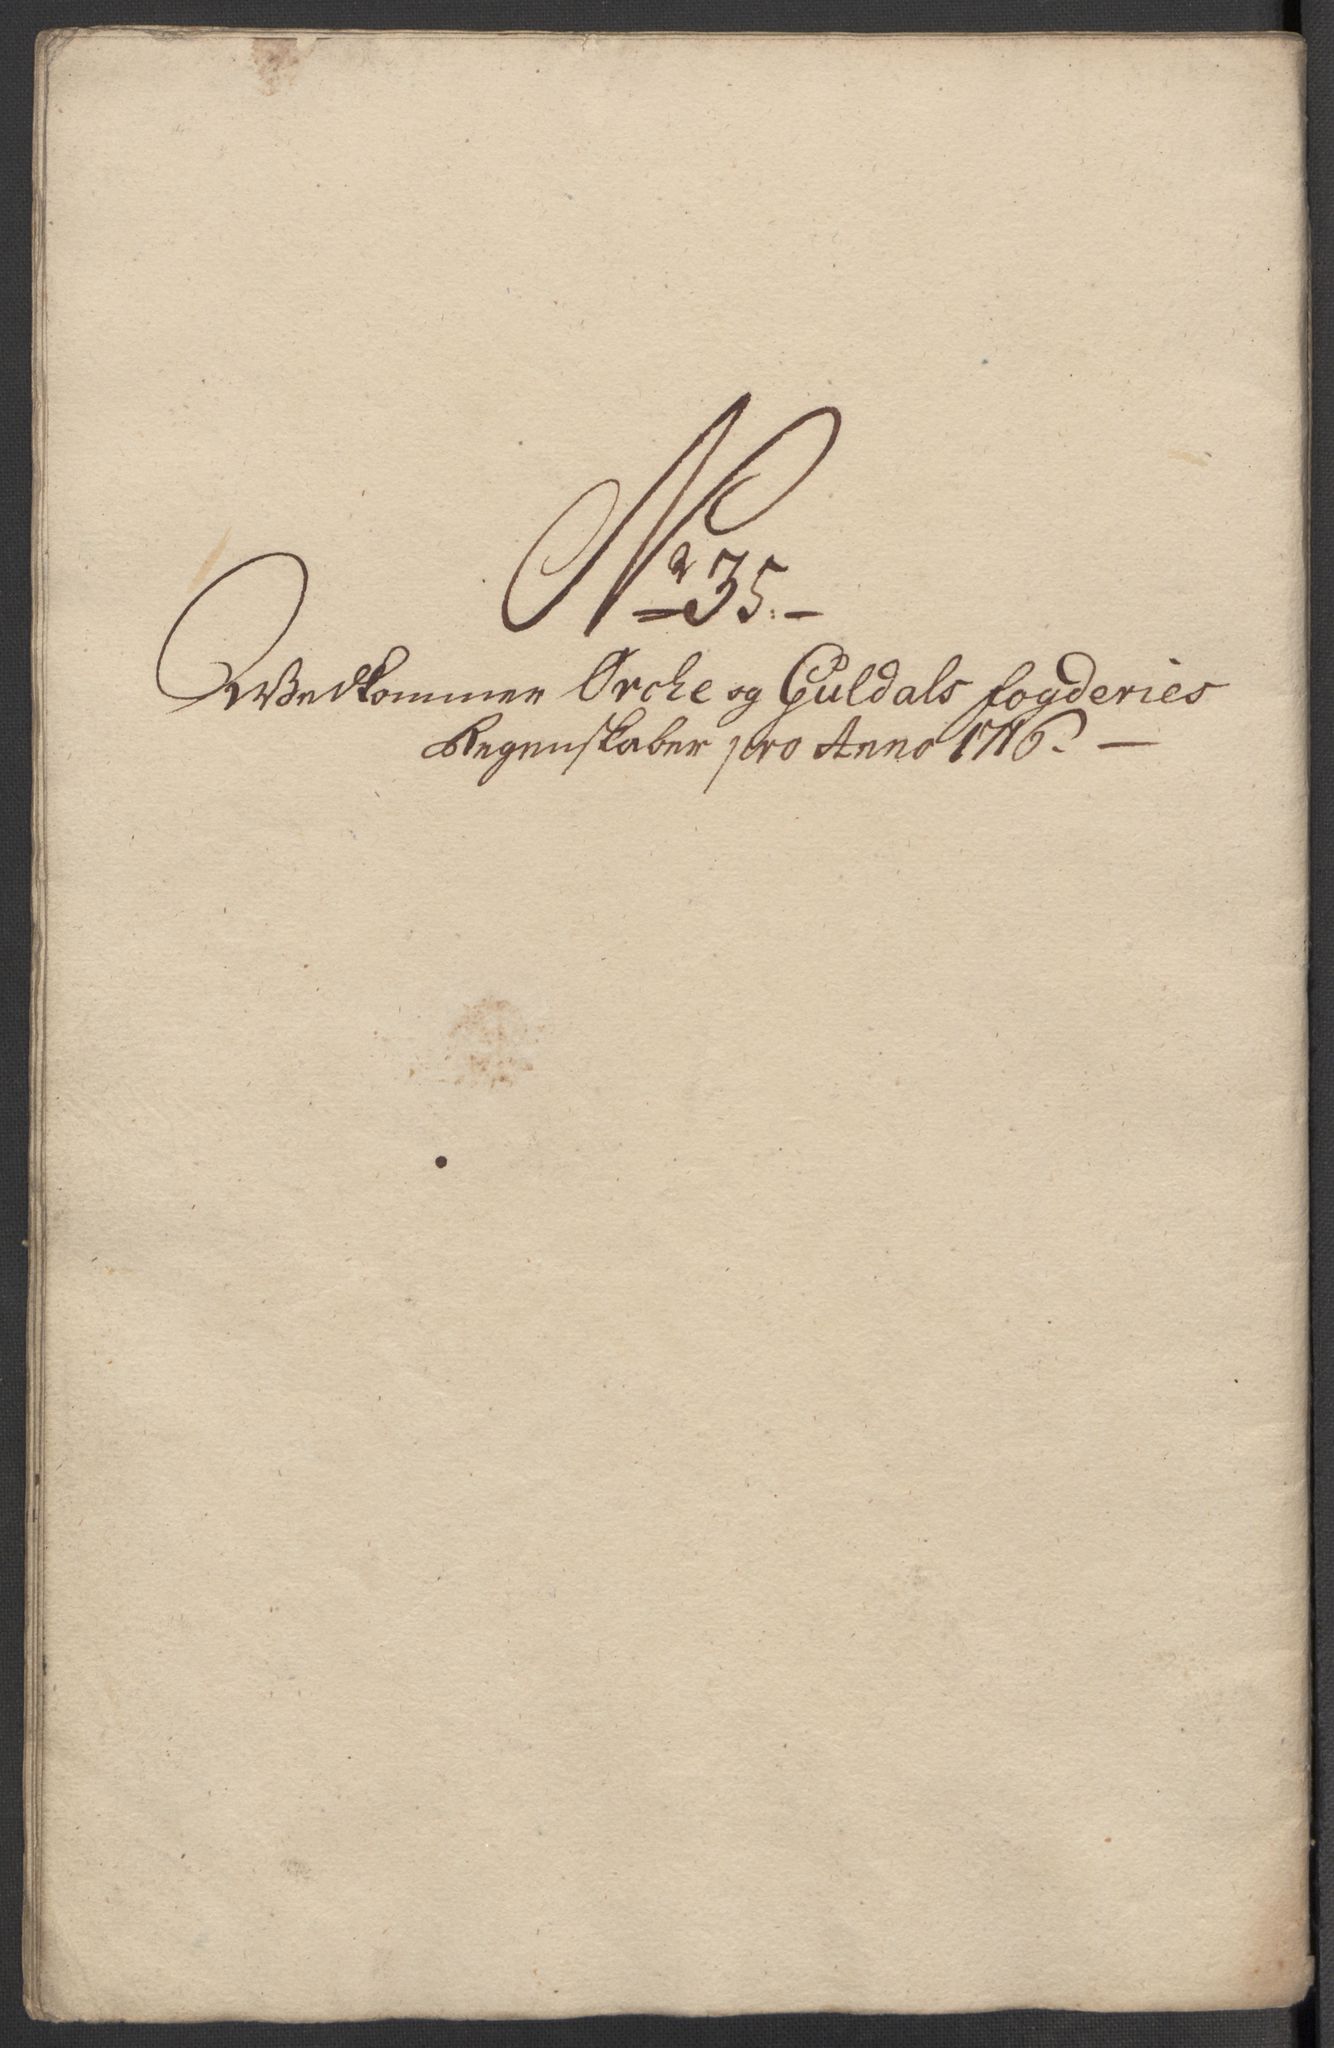 No 35.
Wedkommer Orche og Guldals fogderies
Regenskaber pro Anno 1716.